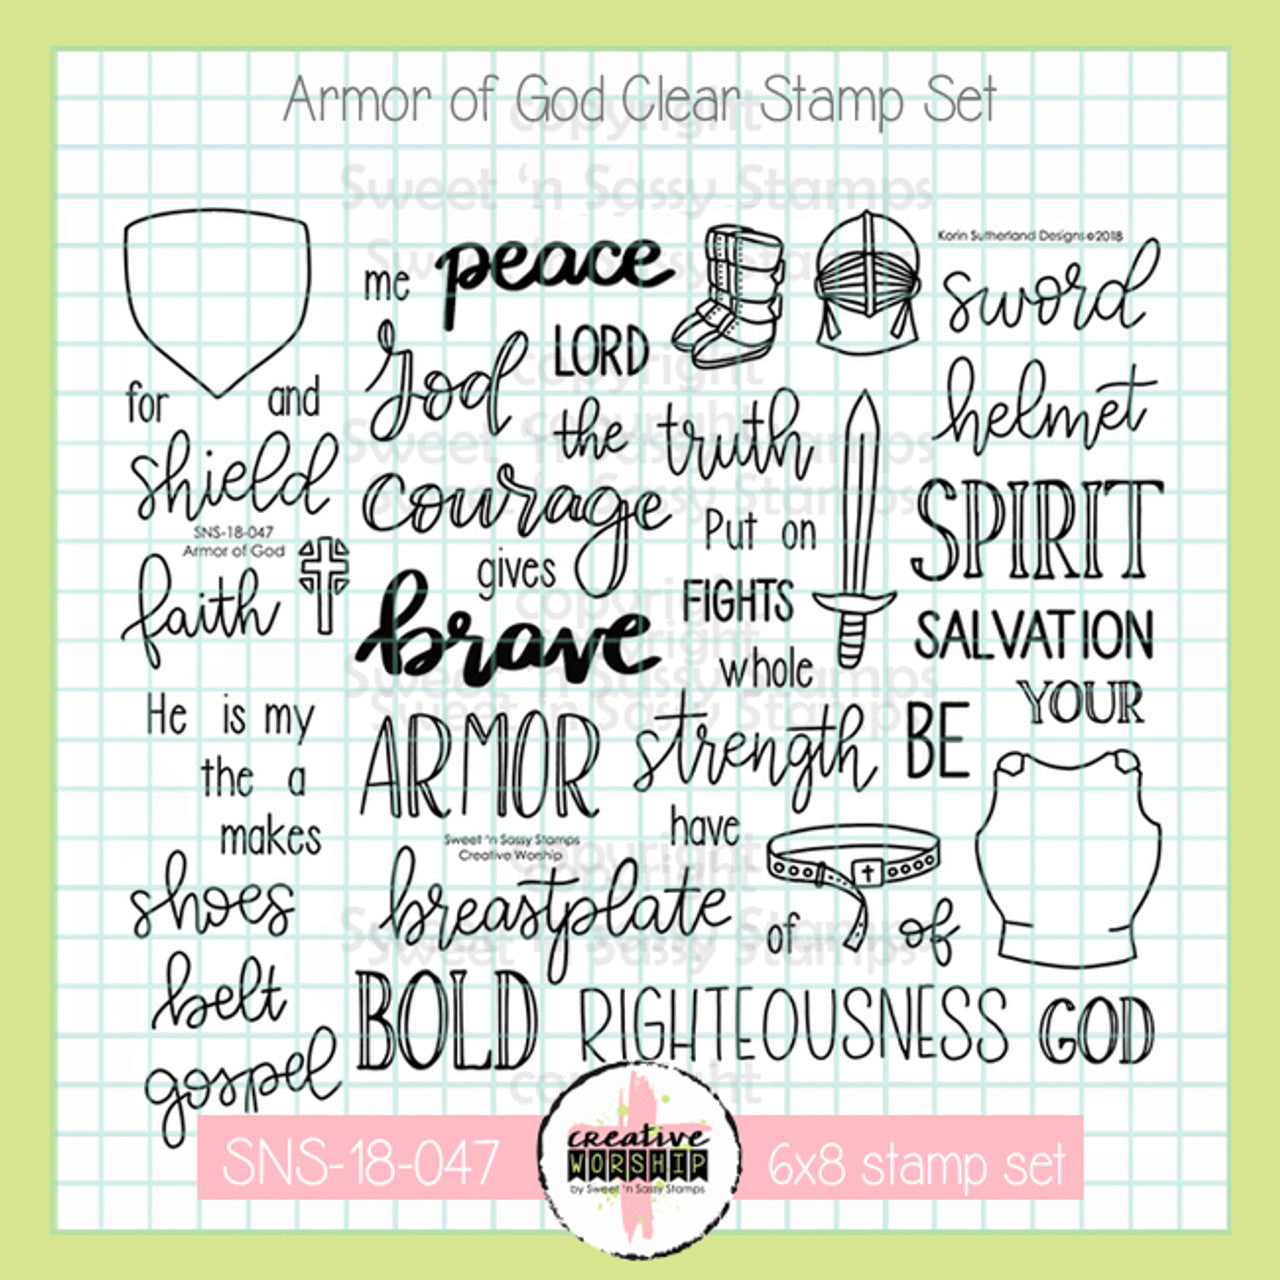 Armor of God Clear Stamp Set
copyright
Sweet 'n Sassy Stamps
Korin Sutherland Designs ©2018
me peace
sword
God LORD
helmet
for and
the truth
shield
courage
Put on
SPIRIT
SNS-18-047
Armor of God
gives
faith
FIGHTS
brave
SALVATION
whole
YOUR
He is my
ARMOR
strength BE
the a
makes
have
Sweet 'n Sassy Stamps
Creative Worship
shoes
breastplate
of of
belt
BOLD RIGHTEOUSNESS GOD
gospel
copyright
SNS-18-047
creative
WORSHIP
by Sweet 'n Sassy Stamps
6x8 stamp set